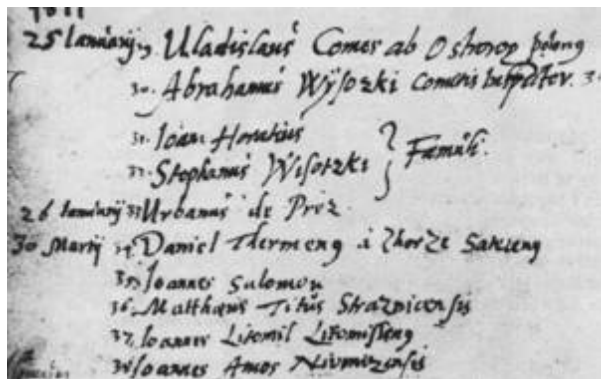 1611
25 Januarij 29. Uladislaus Comes ab Ostrorog polong
30. Abrahamus Wÿsozki Comitis
31. Joan Horatius
32. Stephanus Wisotzki } Famuli.
26 Januarij 33 Urbanus de Prez
30 Martij 34. Daniel Thermeng à Zhorze
35 Joannes Salomon
36. Matthæus Titus Straznicensis
37. Joannes Litomil Litomisleng
38 Joannes Amos Nivnizensis